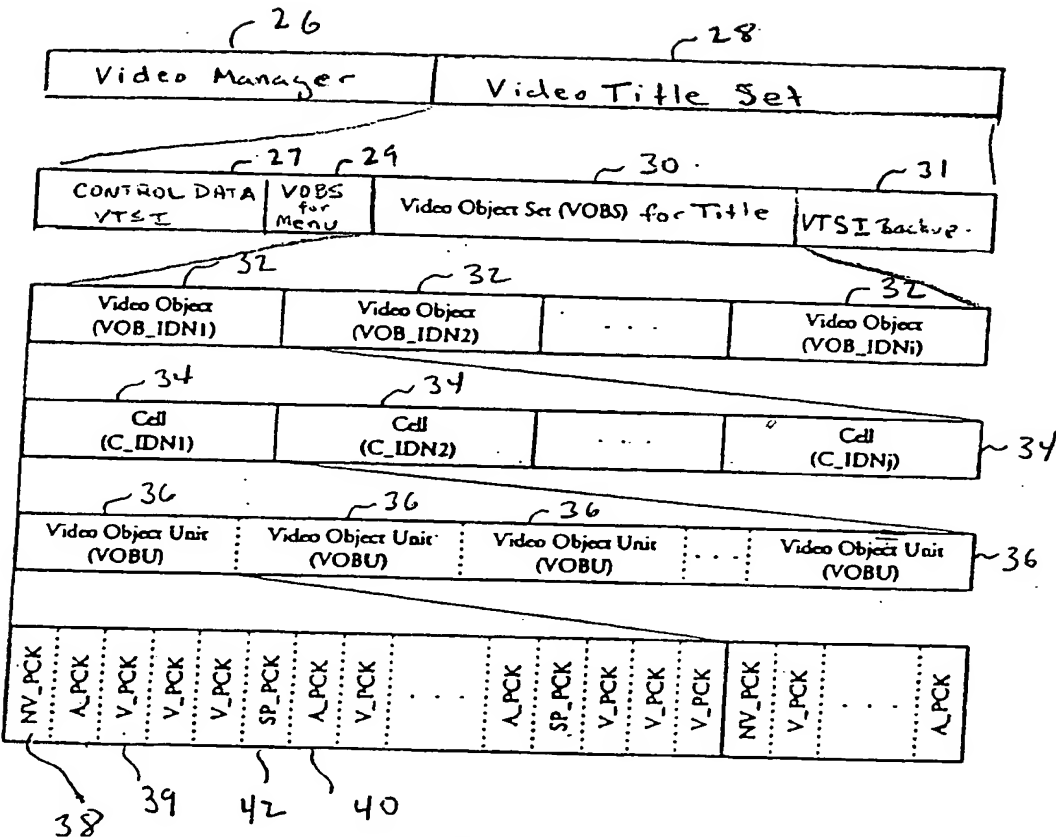 26 28
Video Manager Video Title Set
27 29 30 31
CONTROL DATA VTSI VOBS for Menu Video Object Set (VOBS) for Title VTSI Backup
32 32 32
Video Object (VOB_IDN1) Video Object (VOB_IDN2) . . . . Video Object (VOB_IDNi)
34 34
Cell (C_IDN1) Cell (C_IDN2) . . . . Cell (C_IDNj) 34
36 36 36
Video Object Unit (VOBU) Video Object Unit (VOBU) Video Object Unit (VOBU) . . . Video Object Unit (VOBU) 36
NV_PCK A_PCK V_PCK V_PCK V_PCK SP_PCK A_PCK V_PCK . . . . A_PCK SP_PCK V_PCK V_PCK V_PCK NV_PCK V_PCK . . . . A_PCK
38 39 42 40